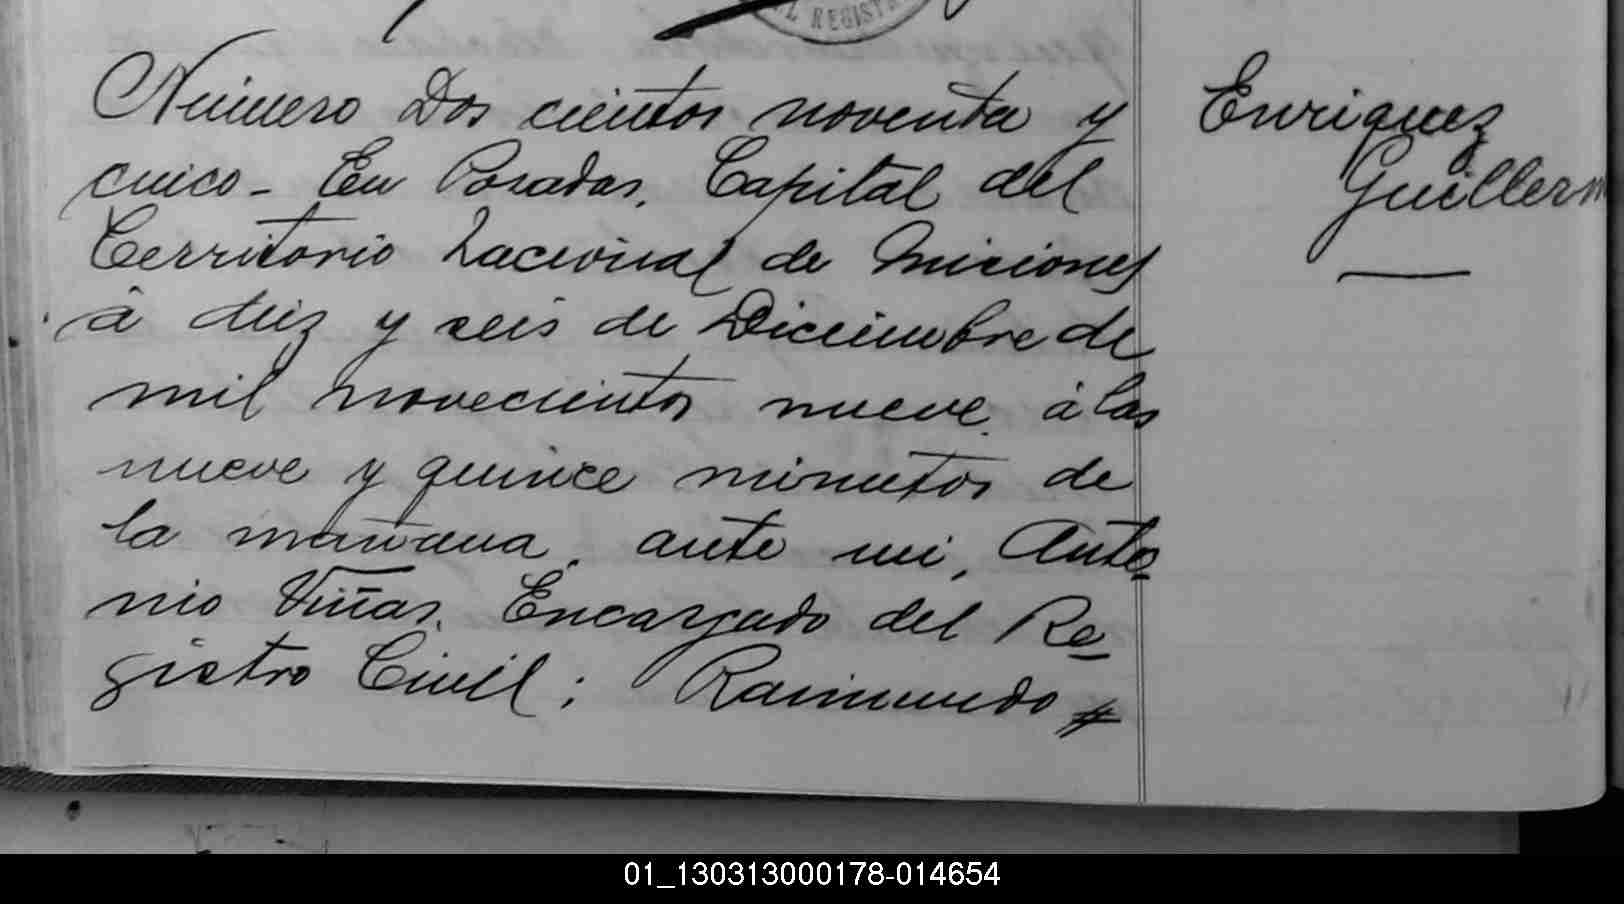 EL REGISTR
Número Dos cientos noventa y
cinco - En Posadas, Capital del
Territorio Nacional de Misiones
á diez y seis de Diciembre de
mil novecientos nueve, á las
nueve y quince minutos de
la mañana, ante mi, Anto-
nio Viñas, Encargado del Re-
gistro Civil; Raimundo
Enriquez
Guillerm
01_130313000178-014654